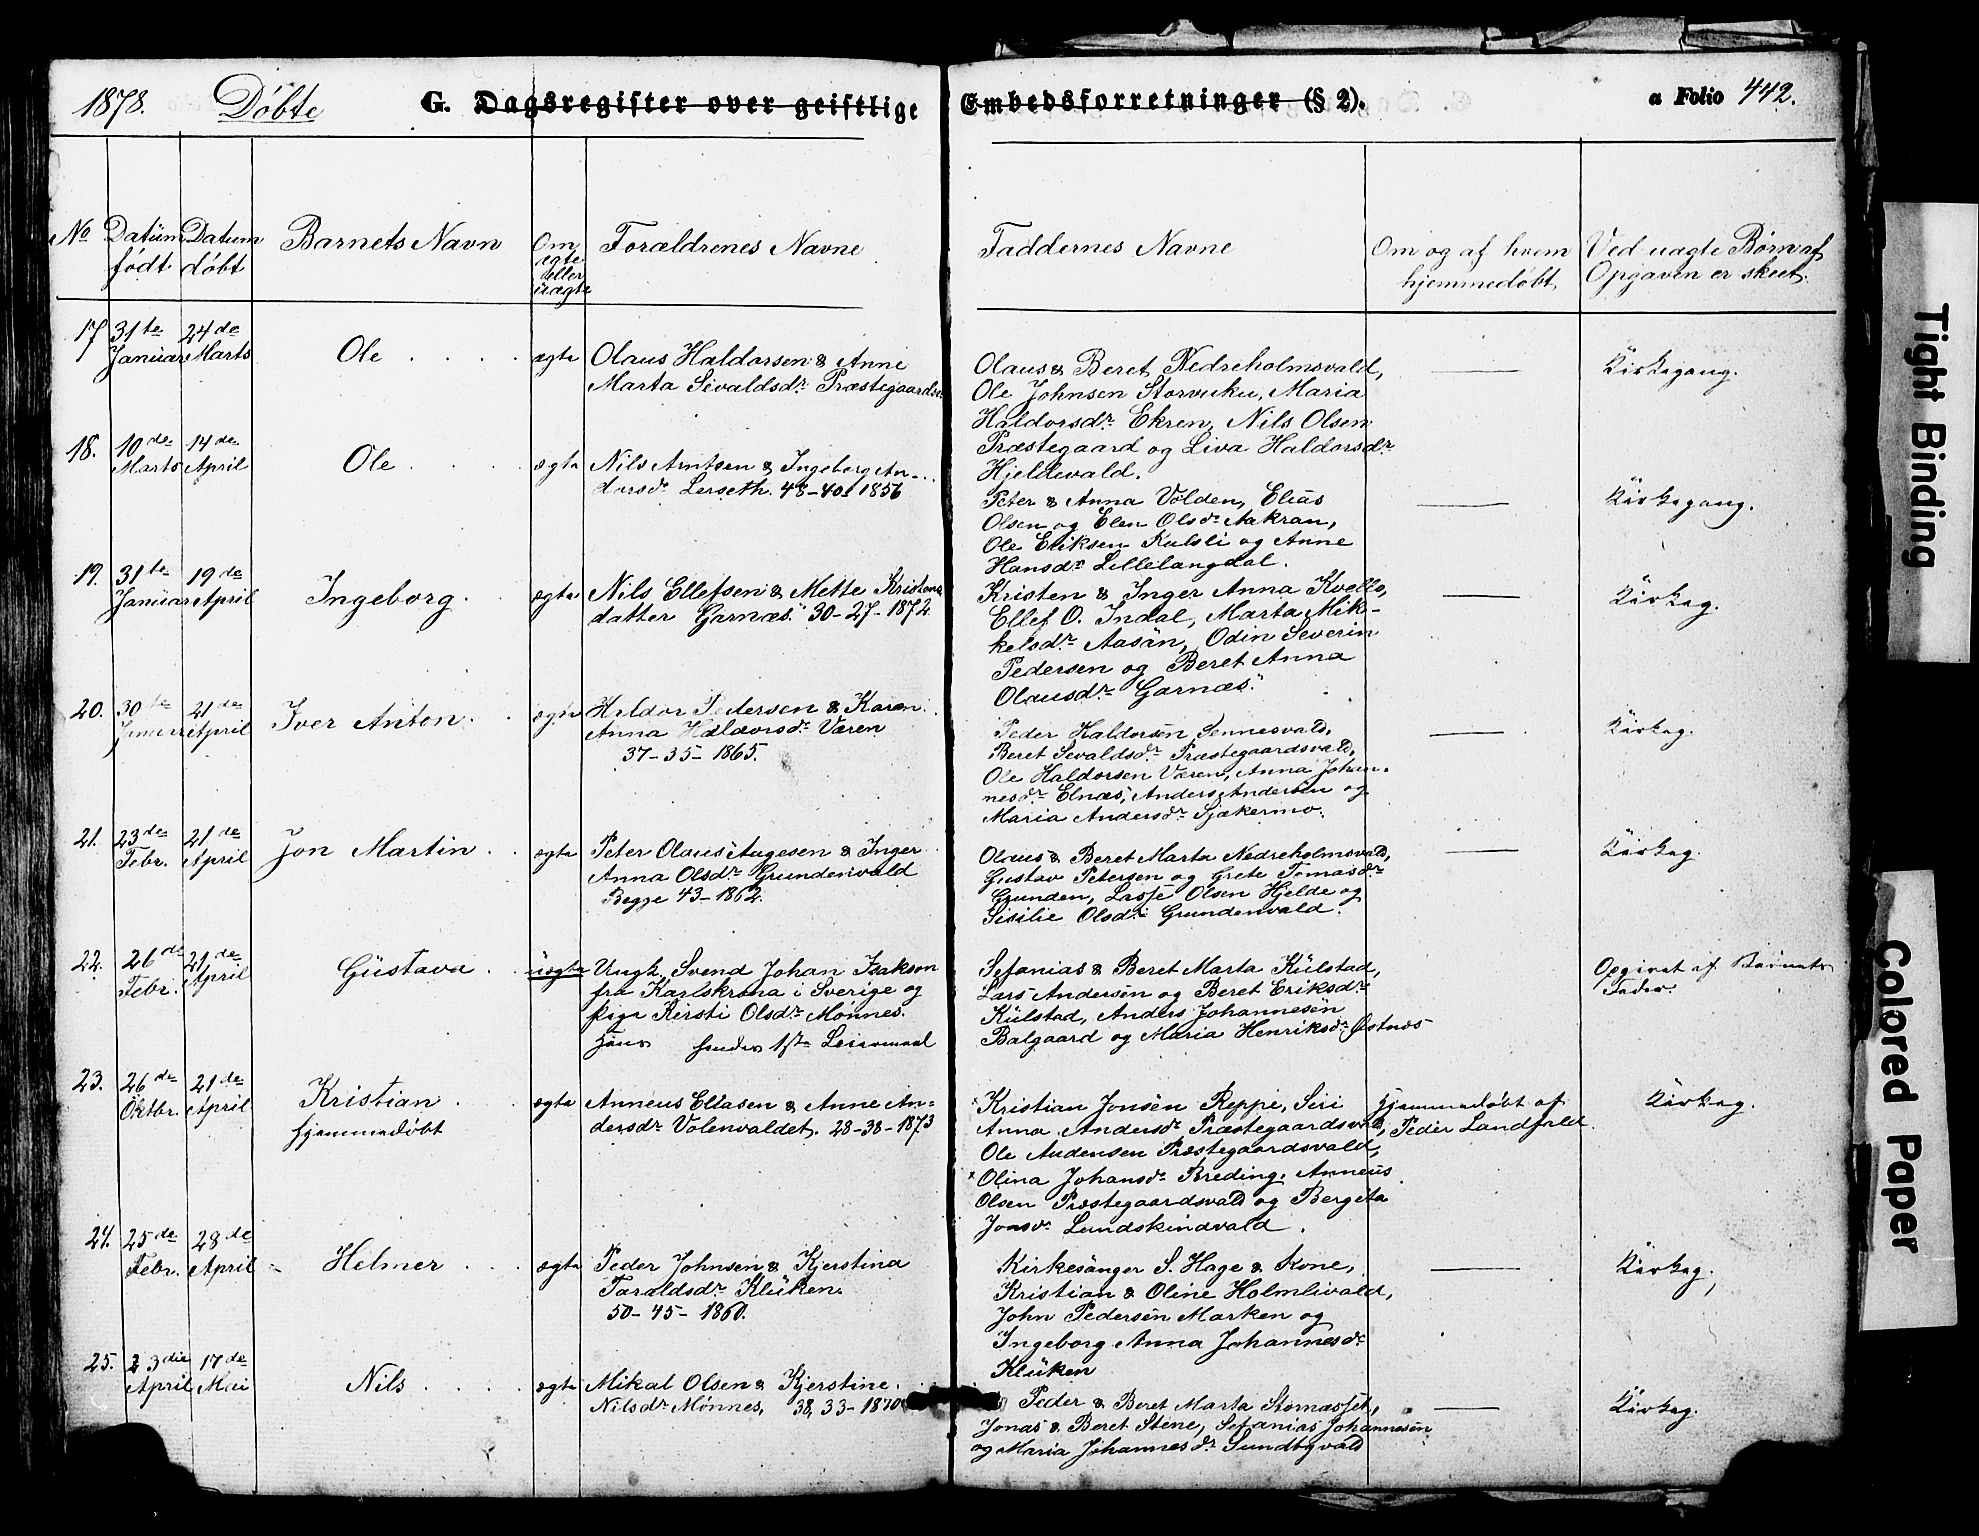 1878. Döbte G. Dagsregister over geistlige Embedsforretninger (§ 2). a Folio 442.
No Datum födt Datum döbt Barnets Navn Om ægte eller uægte Forældrenes Navne Faddernes Navne Om og af hvem hjemmedöbt Ved uagte Börn af Opgaven er skeet.
17 31te Januar 24de Marts Ole ægte
Olaus Haldorsen & Anne
Marta Sivaldsdr. Præstegaardsv.
Olaus & Beret Nedreholmsvald,
Ole Johnsen Storvuku, Maria
Haldorsdr. Ekren, Nils Olsen
Præstegaard og Liva Haldorsdr.
Hjeldevald.
Kirkegang.
18. 10de Marts 14de April Ole ægte
Nils Arntsen & Ingeborg An-
dorsdr. Lerseth. 48-40. 1856
Peter & Anna Volden, Elias
Olsen og Elen Olsdr. Aakran,
Ole Eriksen Kulsli og Anne
Hansdr. Lillelangdal.
Kirkegang.
19. 31te Januar 19de April Ingeborg. ægte
Nils Ellefsen & Mette Kristens
datter Garnæs. 30-27-1872
Kristen & Inger Anna Kvello,
Ellef O. Indal, Marta Mik-
kelsdr. Aasan, Odin Severin
Pedersen og Beret Anna
Olausdr. Garnæs.
Kirkeg.
20. 30te Januar 21de April Iver Anton. ægte
Haldor Pedersen & Karen
Anna Haldorsdr. Væren
37-35-1865.
Peder Haldorsen Sennesvald,
Beret Sevaldsdr. Præstegaardsvald,
Ole Haldorsen Væren, Anna Johan-
nesdr. Elnæs, Anders Andersen og
Maria Andersdr. Sjækermo.
Kirkeg.
21. 23de Febr. 21de April Jon Martin. ægte
Peter Olaus Aagesen & Inger
Anna Olsdr. Grundenvald
Begge 43-1862.
Olaus & Beret Marta Nedreholmsvald,
Gustav Petersen og Grete Tomasdr.
Grunden, Lasse Olsen Hjelde og
Sisilie Olsdr. Grundenvald.
Kirkeg.
22. 26de Febr. 21de April Gustava. uægte
Ungk. Svend Johan Isakson
fra Karlskrona i Sverige og
pige Kersti Olsdr. Mönnes.
Hans hendes 1ste Leiermaal
Sefanias & Beret Marta Külstad,
Lars Andersen og Beret Eriksdr.
Külstad, Anders Johannesen
Balgaard og Maria Henriksdr. Östnes
Opgivet af Barnets
Fader.
23. 26de Oktbr. 21de April Kristian ægte
hjemmedöbt
Anneus Ellasen & Anne An-
dersdr. Volenvaldet. 28-38-1873
Kristian Jonsen Reppe, Siri
Anna Andersdr. Præstegaardsvald,
Ole Audensen Præstegaardsvald,
Olina Johansdr. Breding, Anneus
Olsen Præstegaardsvald og Bergita
Jonsdr. Lundskindvald.
Hjemmedöbt af
Peder Landfald.
Kirkeg.
24. 25de Febr. 28de April Helmer ægte
Peder Johnsen & Kjerstina
Taraldsdr. Klüken.
50-45-1860.
Kirkesanger S. Hage & Kone,
Kristian & Oline Holmlivald,
John Pedersen Marken og
Ingeborg Anna Johannesdr.
Klüken
Kirkeg.
25. 23die April 17de Mai Nils ægte
Mikal Olsen & Kjerstine
Nilsdr. Mönnes, 38, 33-1870
Peder & Beret Marta Stornæsset,
Jonas & Beret Stene, Sefanias Johannesen
og Maria Johannesdr. Sundbyvald
Kirkeg.
Tight Binding
Colored Paper